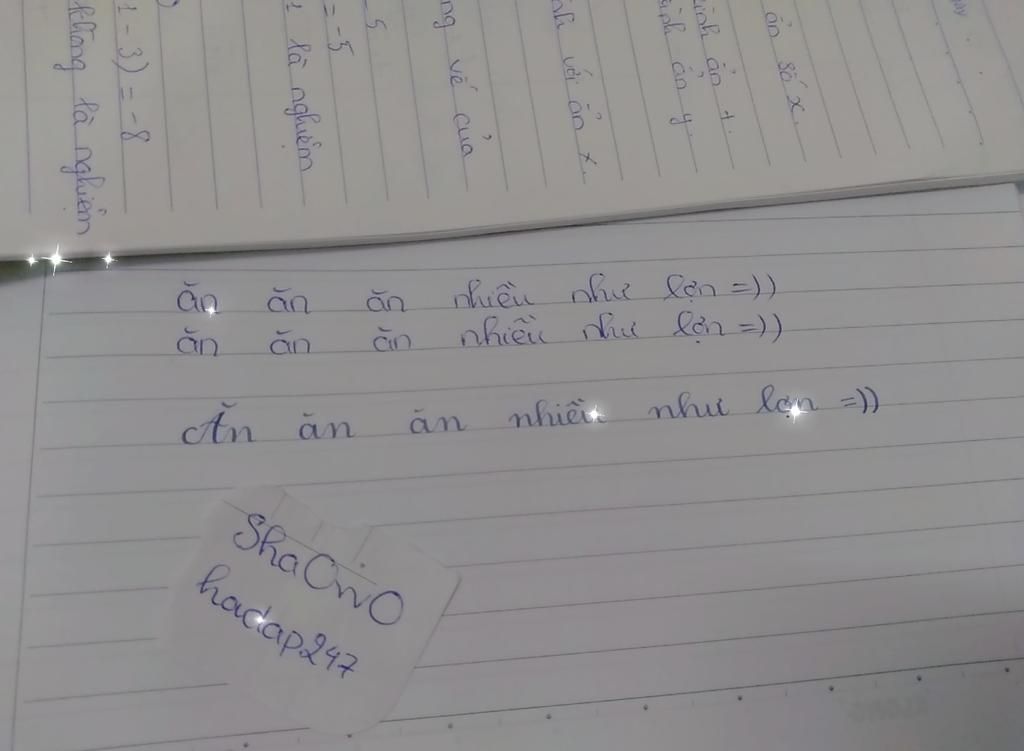 ăn ăn ăn nhiều như lợn =))
ăn ăn ăn nhiều như lợn =))
Ăn ăn ăn nhiều như lợn =))
ShaOwO
hadap247
ẩn số x.
ình ẩn t.
ình ẩn y.
nh với ẩn x.
ng vế của
5
= -5
1 là nghiệm
1 - 3) = -8
không là nghiệm